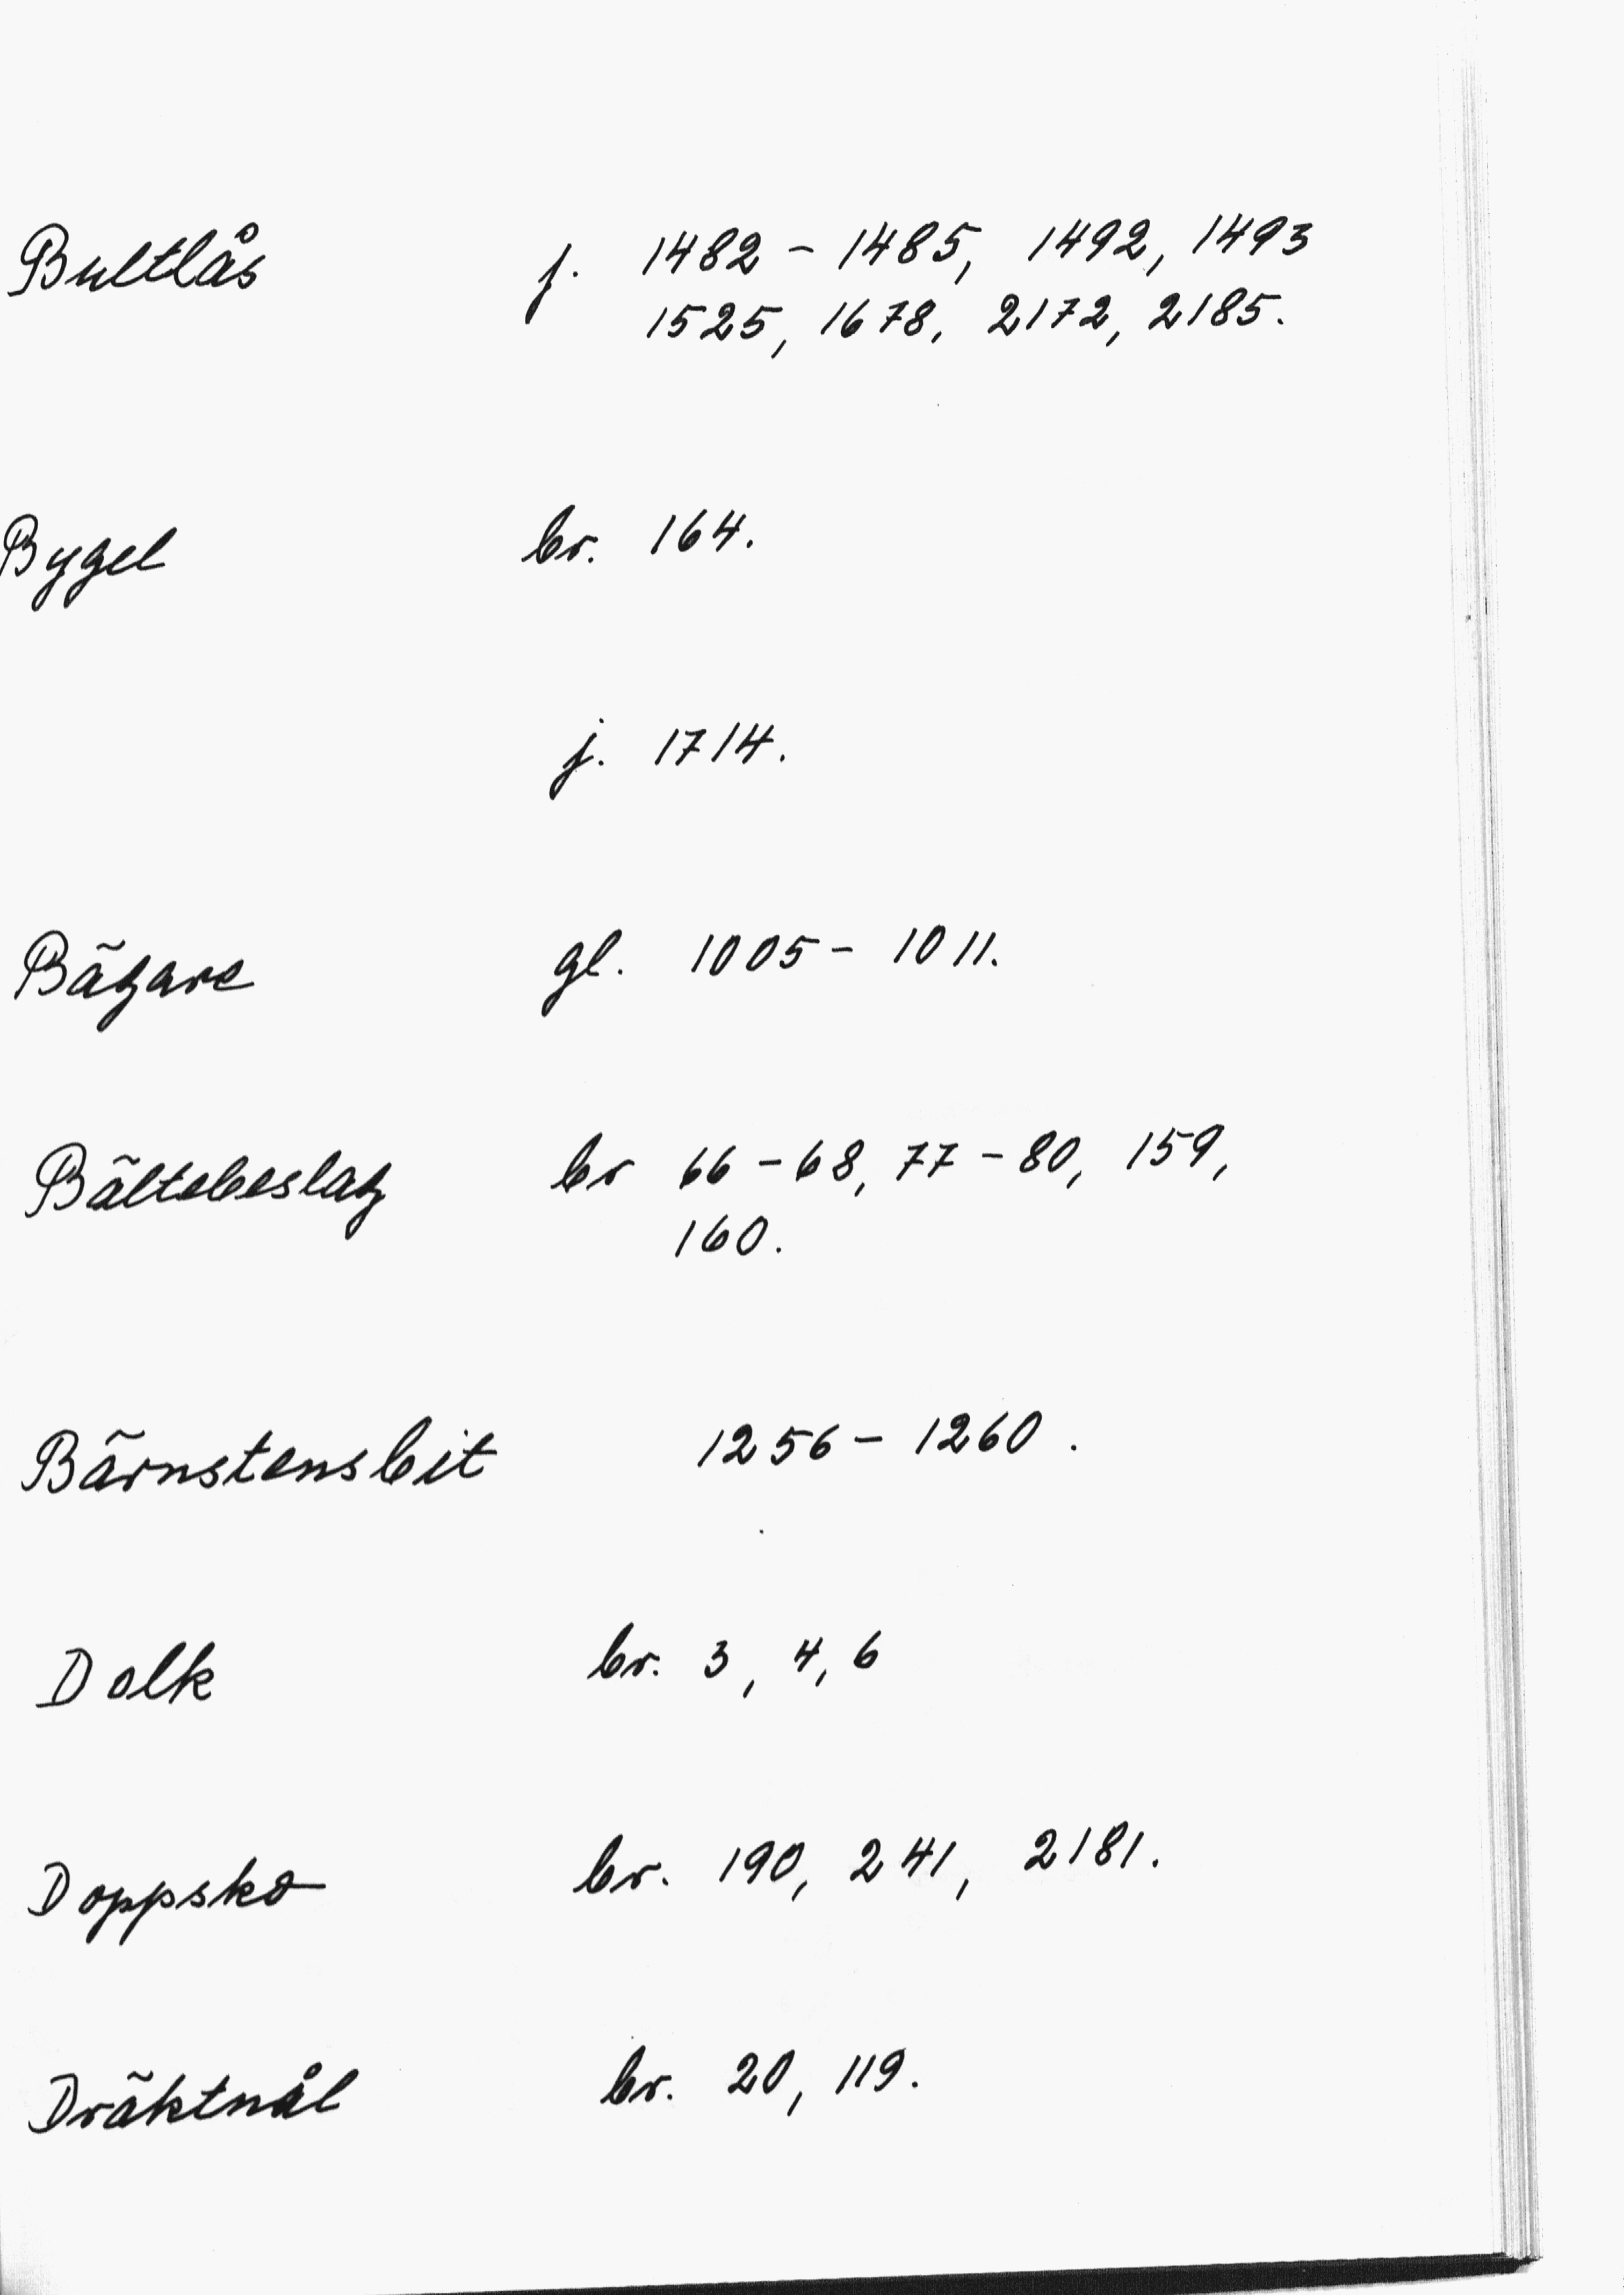 Bultlås j. 1482 - 1485, 1492, 1493
1525, 1678, 2172, 2185.
Bygel br. 164.
j. 1714.
Bägare gl. 1005 - 1011.
Bältebeslag br 66 - 68, 77 - 80, 159,
160.
Bärnstensbit 1256 - 1260.
Dolk br. 3, 4, 6
Doppsko br. 190, 241, 2181.
Dräktnål br. 20, 119.